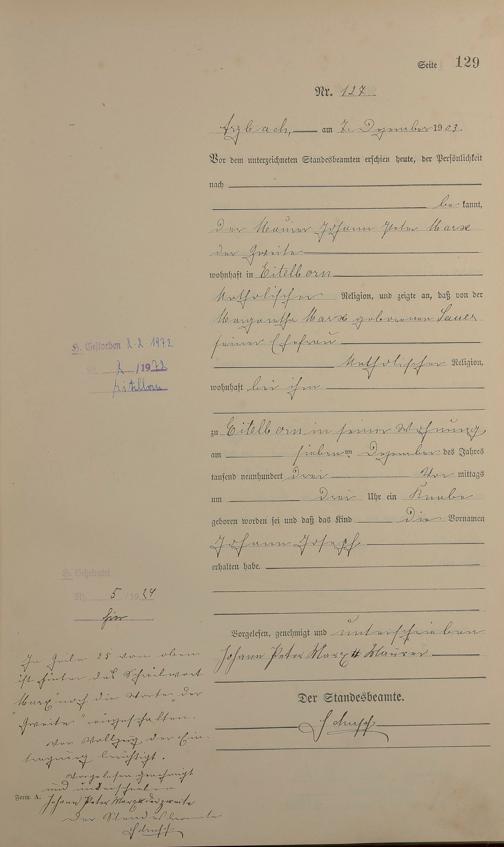 Seite 129
Nr. 127
Arzbach, am 7. Dezember 1903.
Vor dem unterzeichneten Standesbeamten erschien heute, der Persönlichkeit
nach
bekannt,
der Maurer Johann Peter Marx
der Zweite
wohnhaft in Eitelborn
katholischer Religion, und zeigte an, daß von der
Margaretha Marx geborenen Sauer
seiner Ehefrau
katholischer Religion,
wohnhaft bei ihm
zu Eitelborn in seiner Wohnung
am siebenten Dezember des Jahres
tausend neunhundert drei Vor mittags
um drei Uhr ein Knabe
geboren worden sei und daß das Kind die Vornamen
Johann Joseph
erhalten habe.
Vorgelesen, genehmigt und unterschrieben
Johann Peter Marx II Maurer
Der Standesbeamte.
H. Gestorben 2.2.1972
2/1972
Eitelborn
H. Geheiratet
Nr. 5/1924
hier
In Zeile 25 von oben
ist hinter das Schreibwort
"Marx" noch die Worte "der
Zweite" eingeschalten.
Vor Vollzug der Ein-
tragung berichtigt.
Vorgelesen genehmigt
und unterschrieben
Johann Peter Marx der zweite
Der Standesbeamte
Form. A.